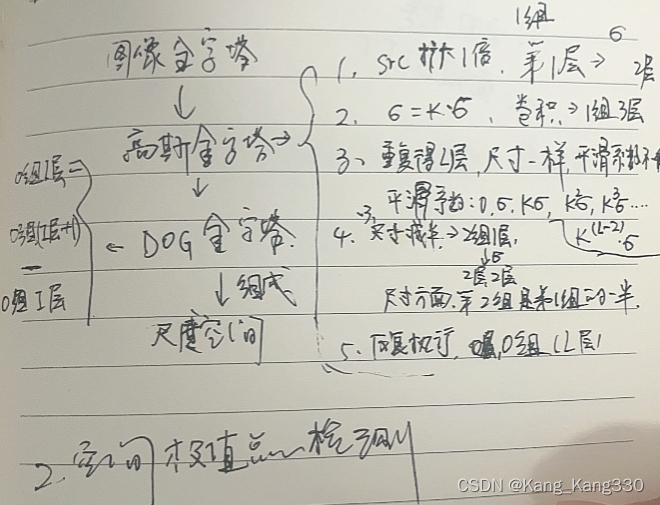 图像金字塔
高斯金字塔→
DOG金字塔
组成
尺度空间
0组I层=
0组(I层+1)
-
0组I层
1组
1. src扩大1倍, 第1层→σ 2层
2. σ=K·σ, 卷积→1组3层
3. 重复得L层, 尺寸一样, 平滑系数不
平滑系数: 0, σ, Kσ, K²σ, K³σ....
K^(L-2)·σ
4. 尺寸减半→2组1层,
↓σ
2组2层
尺寸方面, 第2组是第1组的一半.
5. 反复执行, O组 (L层)
2. 空间极值点检测
CSDN @Kang_Kang330